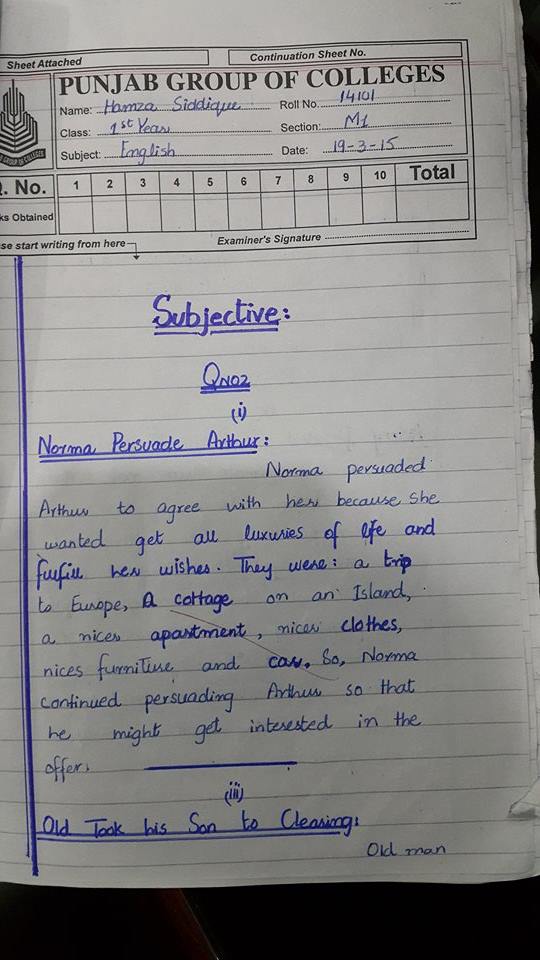 Sheet Attached
Continuation Sheet No.
PUNJAB GROUP OF COLLEGES
Name: Hamza Siddique Roll No. 14101
Class: 1st Year Section: M1
Subject: English Date: 19-3-15
GROUP OF COLLEGES
. No. 1 2 3 4 5 6 7 8 9 10 Total
ks Obtained
se start writing from here
Examiner's Signature
Subjective:
QNO2
(i)
Norma Persuade Arthur:
Norma persuaded
Arthur to agree with her because she
wanted get all luxuries of life and
fulfill her wishes. They were: a trip
to Europe, A cottage on an Island,
a nicer apartment, nicer clothes,
nicer furniture and car. So, Norma
continued persuading Arthur so that
he might get interested in the
offer.
(iii)
Old Took his Son to Clearing:
Old man